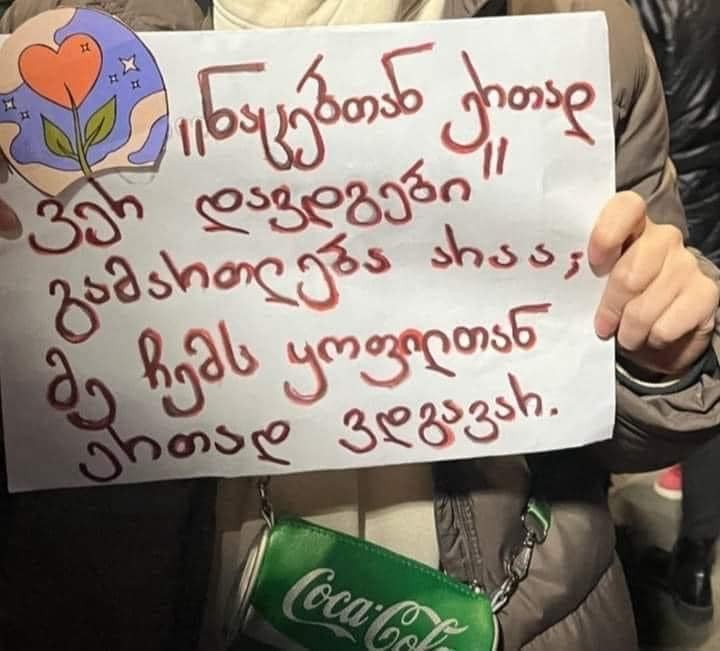 „ნაცებთან ერთად
ვერ დავდგები"
გამართლება არაა;
მე ჩემს ყოფილთან
ერთად ვდგავარ.
Coca-Cola